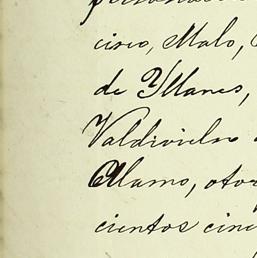 cisco, Malo,
de Yllanes,
Valdivielso
Alamo, otor
cientos cinc